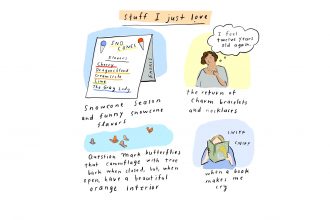 stuff I just love
SNO
CONES
Flavors
Cherry
Dragonsblood
Creamsicle
Lime
The Gray Lady
Snowcone season
and funny snowcone
flavors
I feel
twelve years
old again.
the return of
charm bracelets
and necklaces
Question Mark butterflies
that camouflage with tree
bark when closed, but, when
open, have a beautiful
orange interior
SNIFF
when a book
makes me
cry